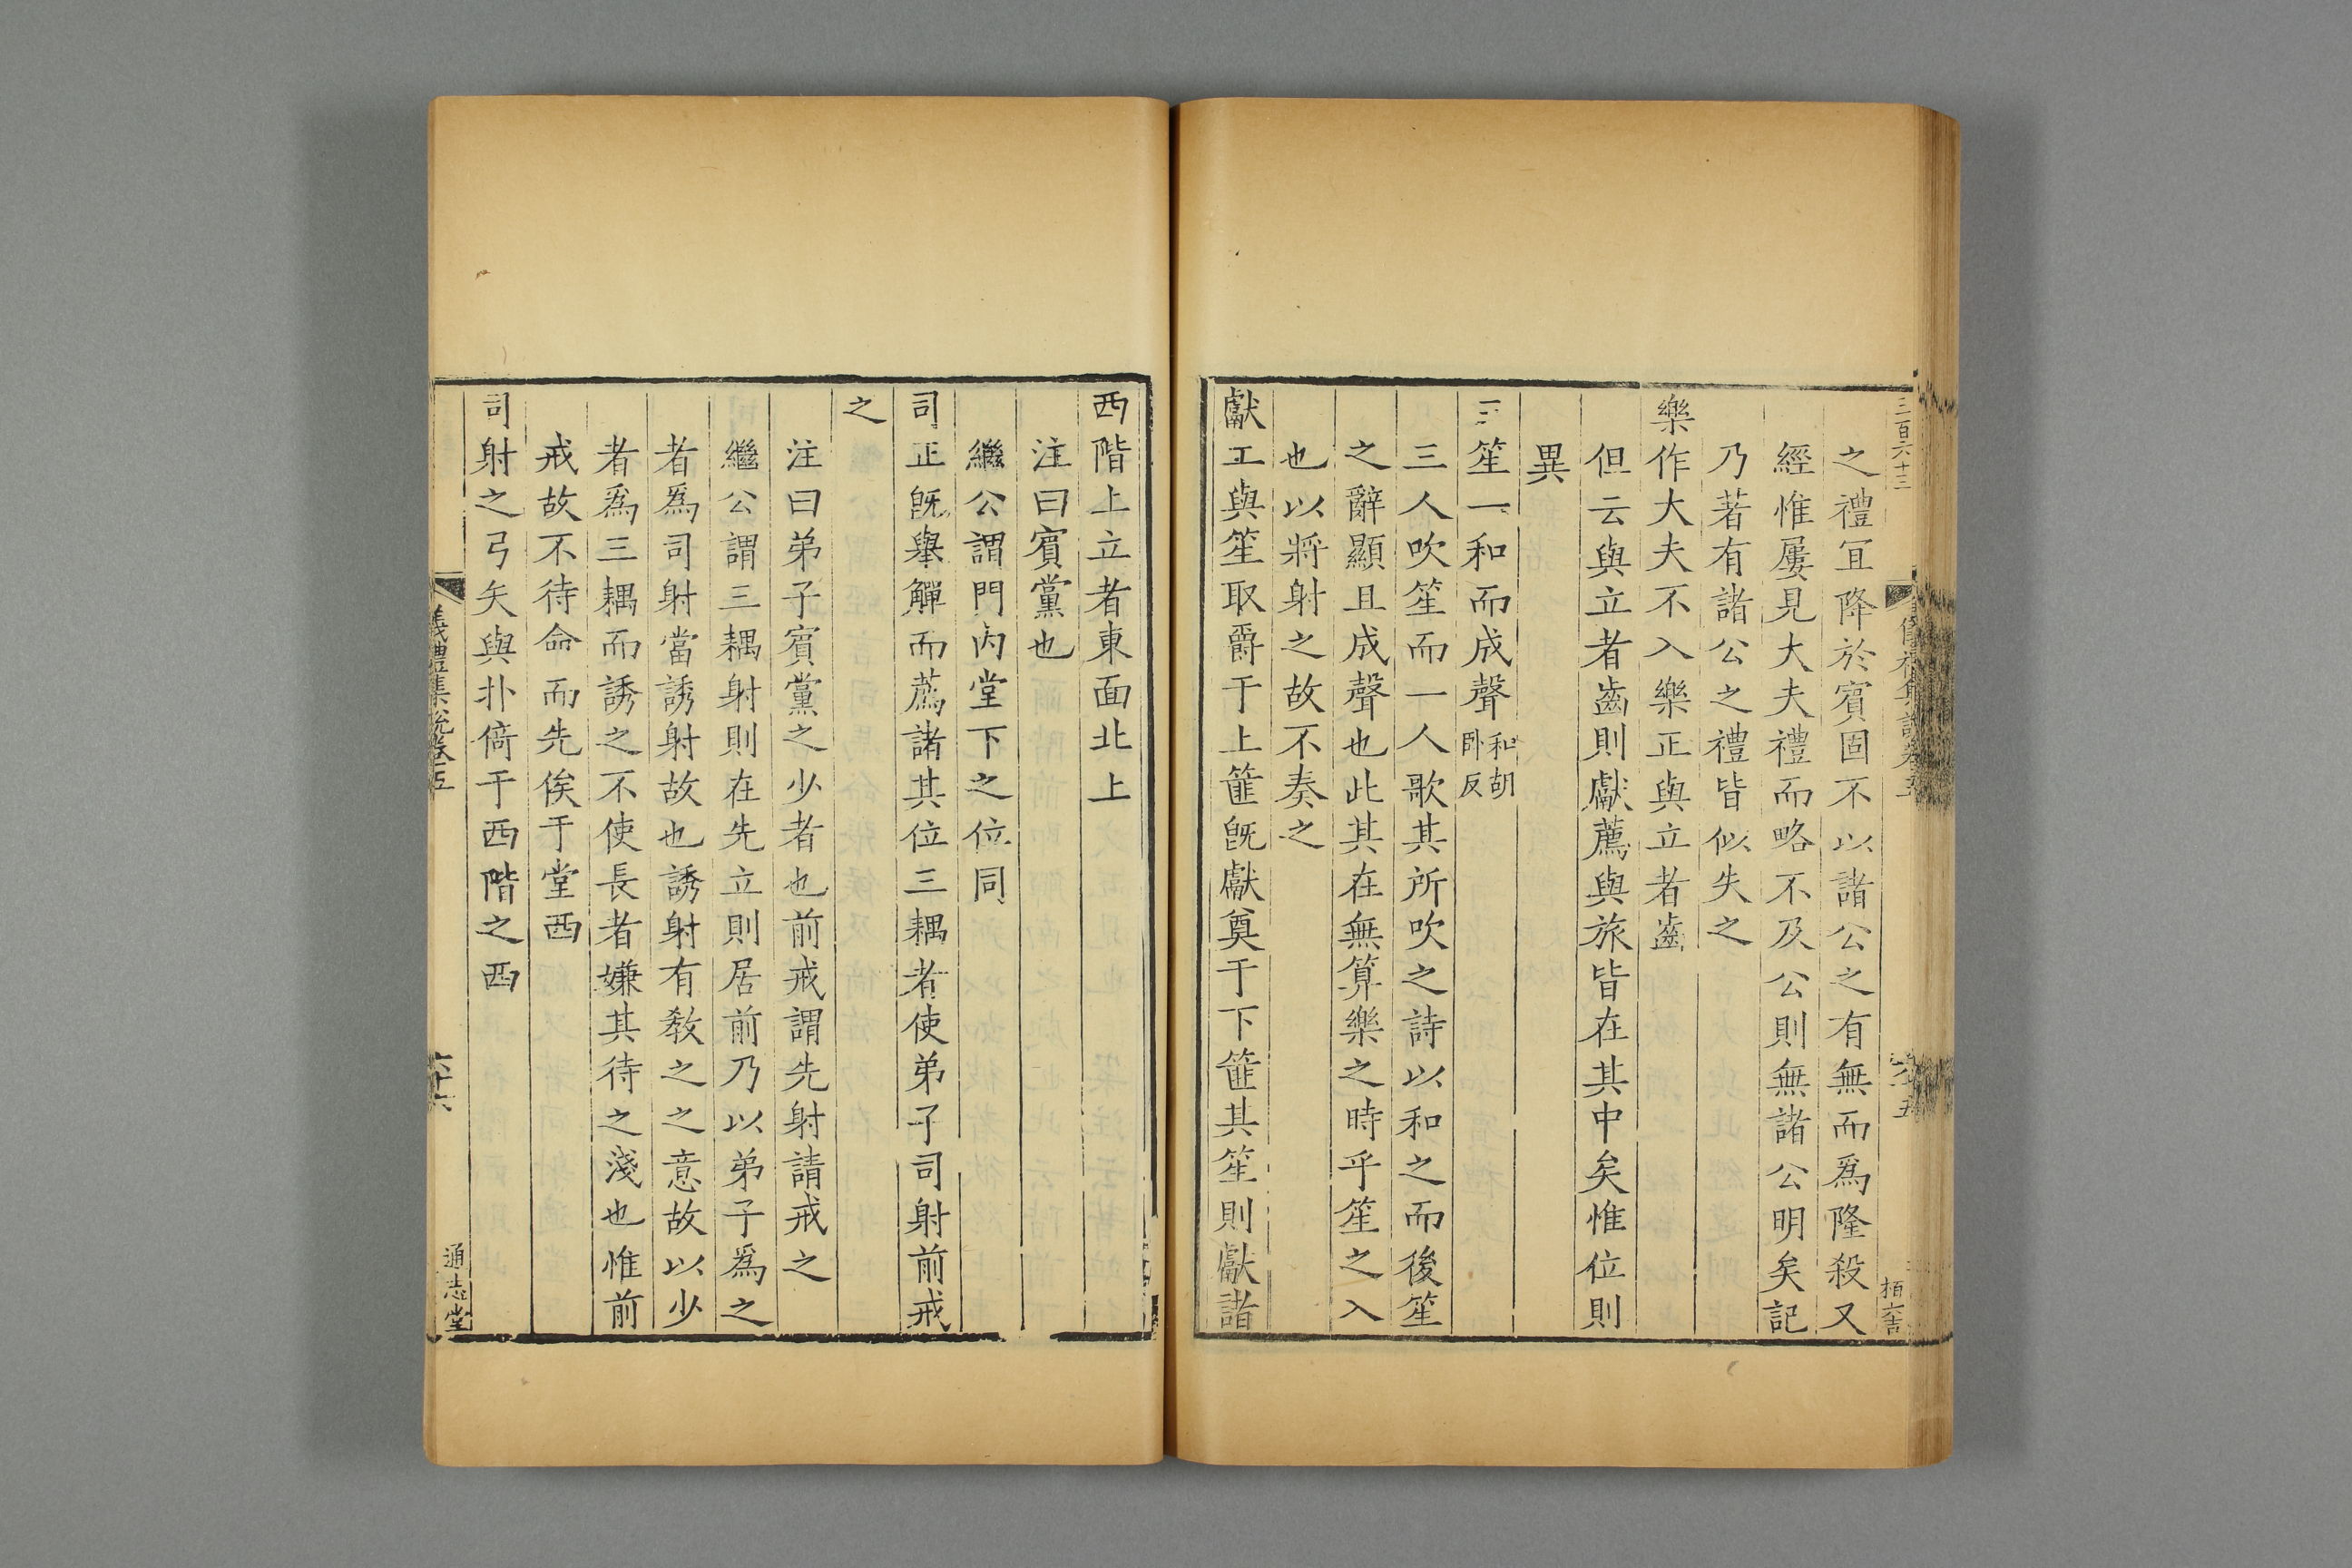 三百六十三
之禮冝降於賓固不以諸公之有無而爲隆殺又
經惟屢見大夫禮而略不及公則無諸公明矣記
乃著有諸公之禮皆似失之
樂作大夫不入樂正與立者齒
但云與立者齒則獻薦與旅皆在其中矣惟位則
異
三笙一和而成聲和胡卧反
三人吹笙而一人歌其所吹之詩以和之而後笙
之辭顯且成聲也此其在無算樂之時乎笙之入
也以將射之故不奏之
獻工與笙取爵于上篚旣獻奠于下篚其笙則獻諸
西階上立者東面北上
注曰賓黨也
繼公謂門内堂下之位同
司正旣舉觶而薦諸其位三耦者使弟子司射前戒
之
注曰弟子賓黨之少者也前戒謂先射請戒之
繼公謂三耦射則在先立則居前乃以弟子爲之
者爲司射當誘射故也誘射有敎之之意故以少
者爲三耦而誘之不使長者嫌其待之淺也惟前
戒故不待命而先俟于堂西
司射之弓矢與扑倚于西階之西
儀禮集說卷五
六十六
通志堂